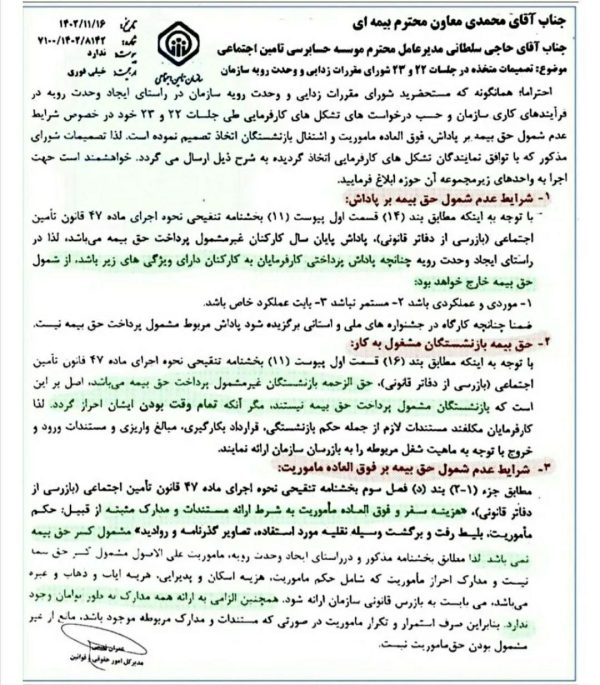 جناب آقای محمدی معاون محترم بیمه ای
جناب آقای حاجی سلطانی مدیرعامل محترم موسسه حسابرسی تامین اجتماعی
موضوع: تصمیمات متخذه در جلسات ۲۲ و ۲۳ شورای مقررات زدایی و وحدت رویه سازمان
۱۴۰۲/۱۱/۱۶
شماره: ۷۱۰۰/۱۴۰۲/۸۱۴۲
پیوست: ندارد
خیلی فوری
سازمان تأمین اجتماعی
احتراما؛ همانگونه که مستحضرید شورای مقررات زدایی و وحدت رویه سازمان در راستای ایجاد وحدت رویه در
فرآیندهای کاری سازمان و حسب درخواست های تشکل های کارفرمایی طی جلسات ۲۲ و ۲۳ خود در خصوص شرایط
عدم شمول حق بیمه بر پاداش، فوق العاده ماموریت و اشتغال بازنشستگان اتخاذ تصمیم نموده است. لذا تصمیمات شورای
مذکور که با توافق نمایندگان تشکل های کارفرمایی اتخاذ گردیده به شرح ذیل ارسال می گردد. خواهشمند است جهت
اجرا به واحدهای زیرمجموعه آن حوزه ابلاغ فرمایید.
۱- شرایط عدم شمول حق بیمه بر پاداش:
با توجه به اینکه مطابق بند (۱۴) قسمت اول پیوست (۱۱) بخشنامه تنقیحی نحوه اجرای ماده ۴۷ قانون تأمین
اجتماعی (بازرسی از دفاتر قانونی)، پاداش پایان سال کارکنان غیرمشمول پرداخت حق بیمه می‌باشد، لذا در
راستای ایجاد وحدت رویه چنانچه پاداش پرداختی کارفرمایان به کارکنان دارای ویژگی های زیر باشد، از شمول
حق بیمه خارج خواهد بود:
۱- موردی و عملکردی باشد ۲- مستمر نباشد ۳- بابت عملکرد خاص باشد.
ضمنا چنانچه کارگاه در جشنواره های ملی و استانی برگزیده شود پاداش مربوط مشمول پرداخت حق بیمه نیست.
۲- حق بیمه بازنشستگان مشغول به کار:
با توجه به اینکه مطابق بند (۱۶) قسمت اول پیوست (۱۱) بخشنامه تنقیحی نحوه اجرای ماده ۴۷ قانون تأمین
اجتماعی (بازرسی از دفاتر قانونی)، حق الزحمه بازنشستگان غیرمشمول پرداخت حق بیمه می‌باشد، اصل بر این
است که بازنشستگان مشمول پرداخت حق بیمه نیستند، مگر آنکه تمام وقت بودن ایشان احراز گردد. لذا
کارفرمایان مکلفند مستندات لازم از جمله حکم بازنشستگی، قرارداد بکارگیری، مبالغ واریزی و مستندات ورود و
خروج با توجه به ماهیت شغل مربوطه را به بازرسان سازمان ارائه نمایند.
۳- شرایط عدم شمول حق بیمه بر فوق العاده ماموریت:
مطابق جزء (۱-۲) بند (د) فصل سوم بخشنامه تنقیحی نحوه اجرای ماده ۴۷ قانون تأمین اجتماعی (بازرسی از
دفاتر قانونی)، «هزینه سفر و فوق العاده مأموریت به شرط ارائه مستندات و مدارک مثبته از قبیل: حکم
مأموریت، بلیط رفت و برگشت وسیله نقلیه مورد استفاده، تصاویر گذرنامه و روادید» مشمول کسر حق بیمه
نمی باشد. لذا مطابق بخشنامه مذکور و درراستای ایجاد وحدت رویه، ماموریت علی الاصول مشمول کسر حق بیمه
نیست و مدارک احراز مأموریت که شامل حکم ماموریت، هزینه اسکان و پذیرایی، هزینه ایاب و ذهاب و غیره
می‌باشد، می بایست به بازرس قانونی سازمان ارائه شود. همچنین الزامی به ارائه همه مدارک به طور توامان وجود
ندارد. بنابراین صرف استمرار و تکرار ماموریت در صورتی که مستندات و مدارک مربوطه موجود باشد، مانع از غیر
مشمول بودن حق ماموریت نیست.
مدیرکل امور حقوقی و قوانین